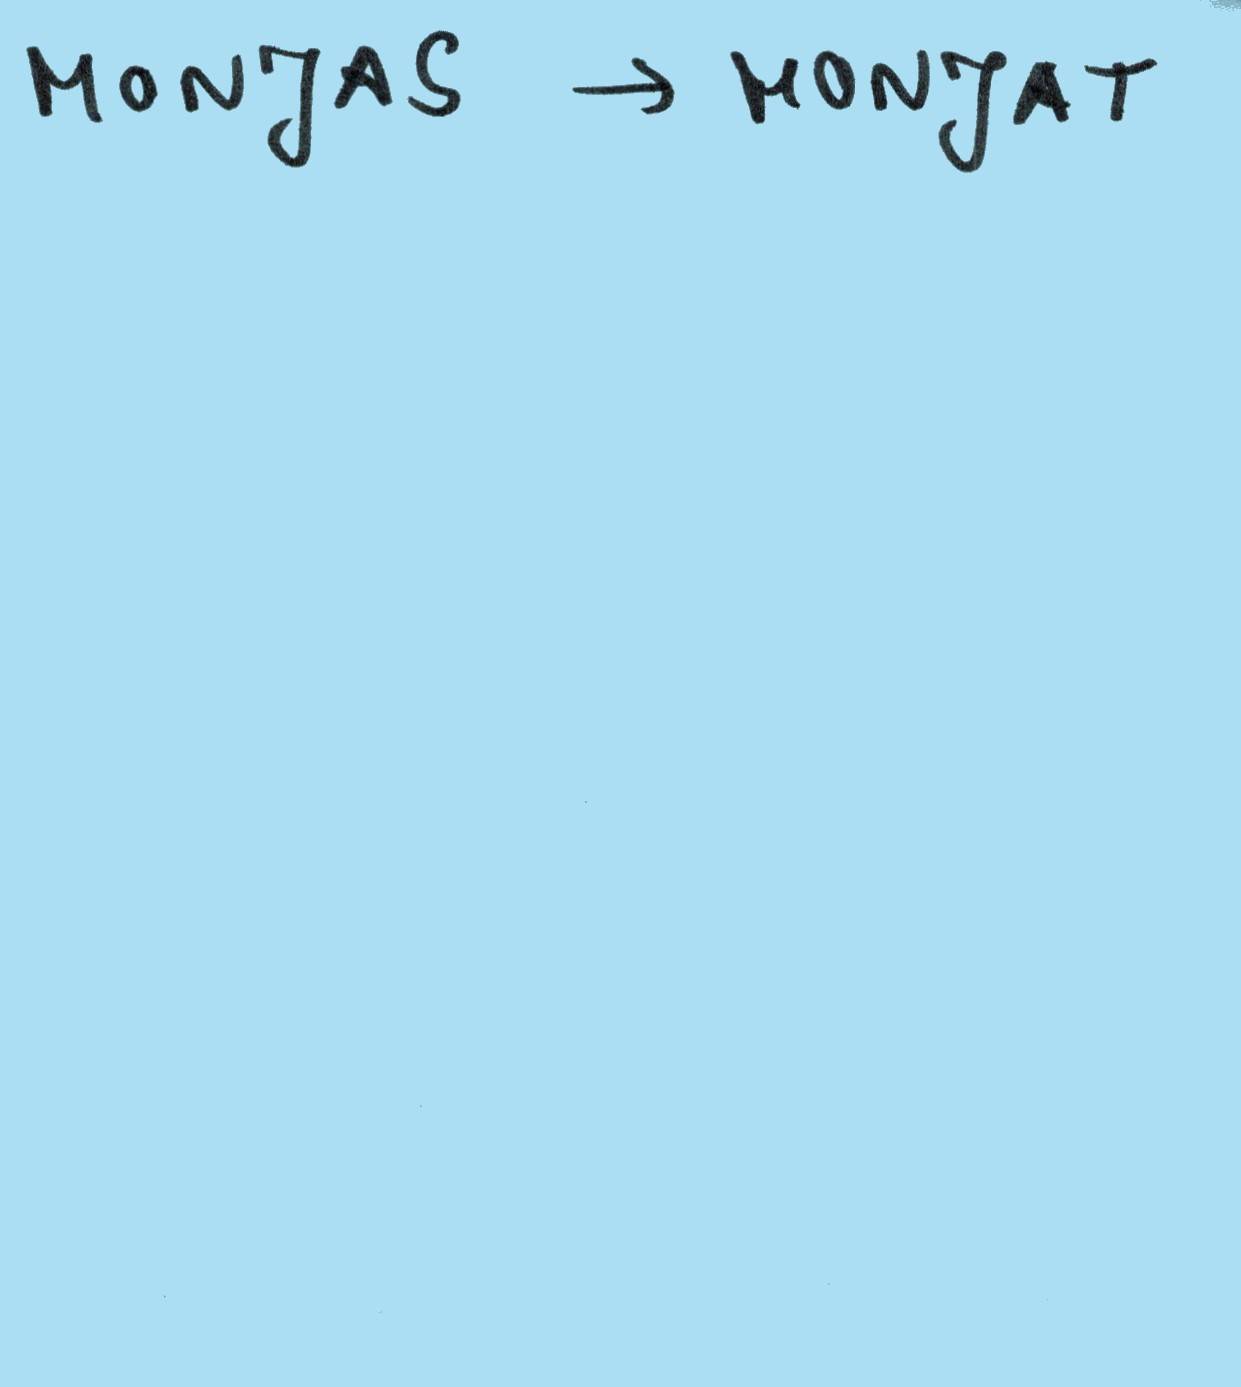 MONJAS → MONJAT